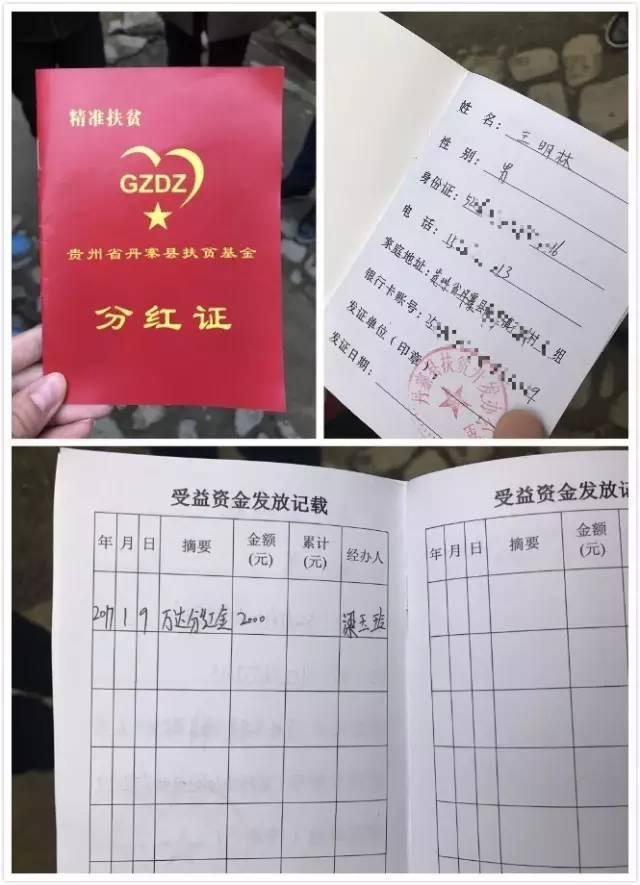 精准扶贫
GZDZ
贵州省丹寨县扶贫基金
分红证
姓 名：王明林
性 别：男
身份证：52 16
电 话：15 13
家庭地址：贵州省丹寨县 村 组
银行卡账号：25 9
发证单位（印章）：
发证日期：
丹寨县扶贫开发办
受益资金发放记载
年 月 日 摘要 金额(元) 累计(元) 经办人
2017 1 9 万达分红金 2000 梁玉
受益资金发放记
年 月 日 摘要 金额(元)